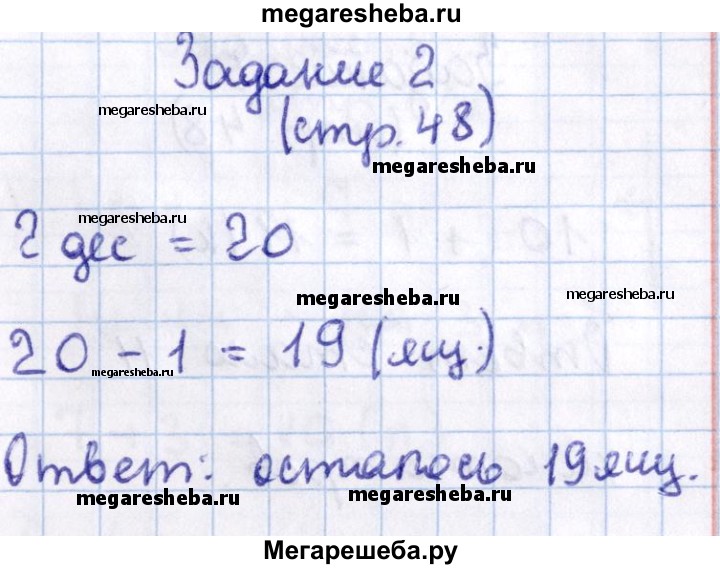 megaresheba.ru
Задание 2
megaresheba.ru
(стр. 48)
megaresheba.ru
megaresheba.ru
2 дес = 20
megaresheba.ru
megaresheba.ru
20 - 1 = 19 (ящ.)
megaresheba.ru
Ответ: осталось 19 ящ.
megaresheba.ru
megaresheba.ru
Мегарешеба.ру